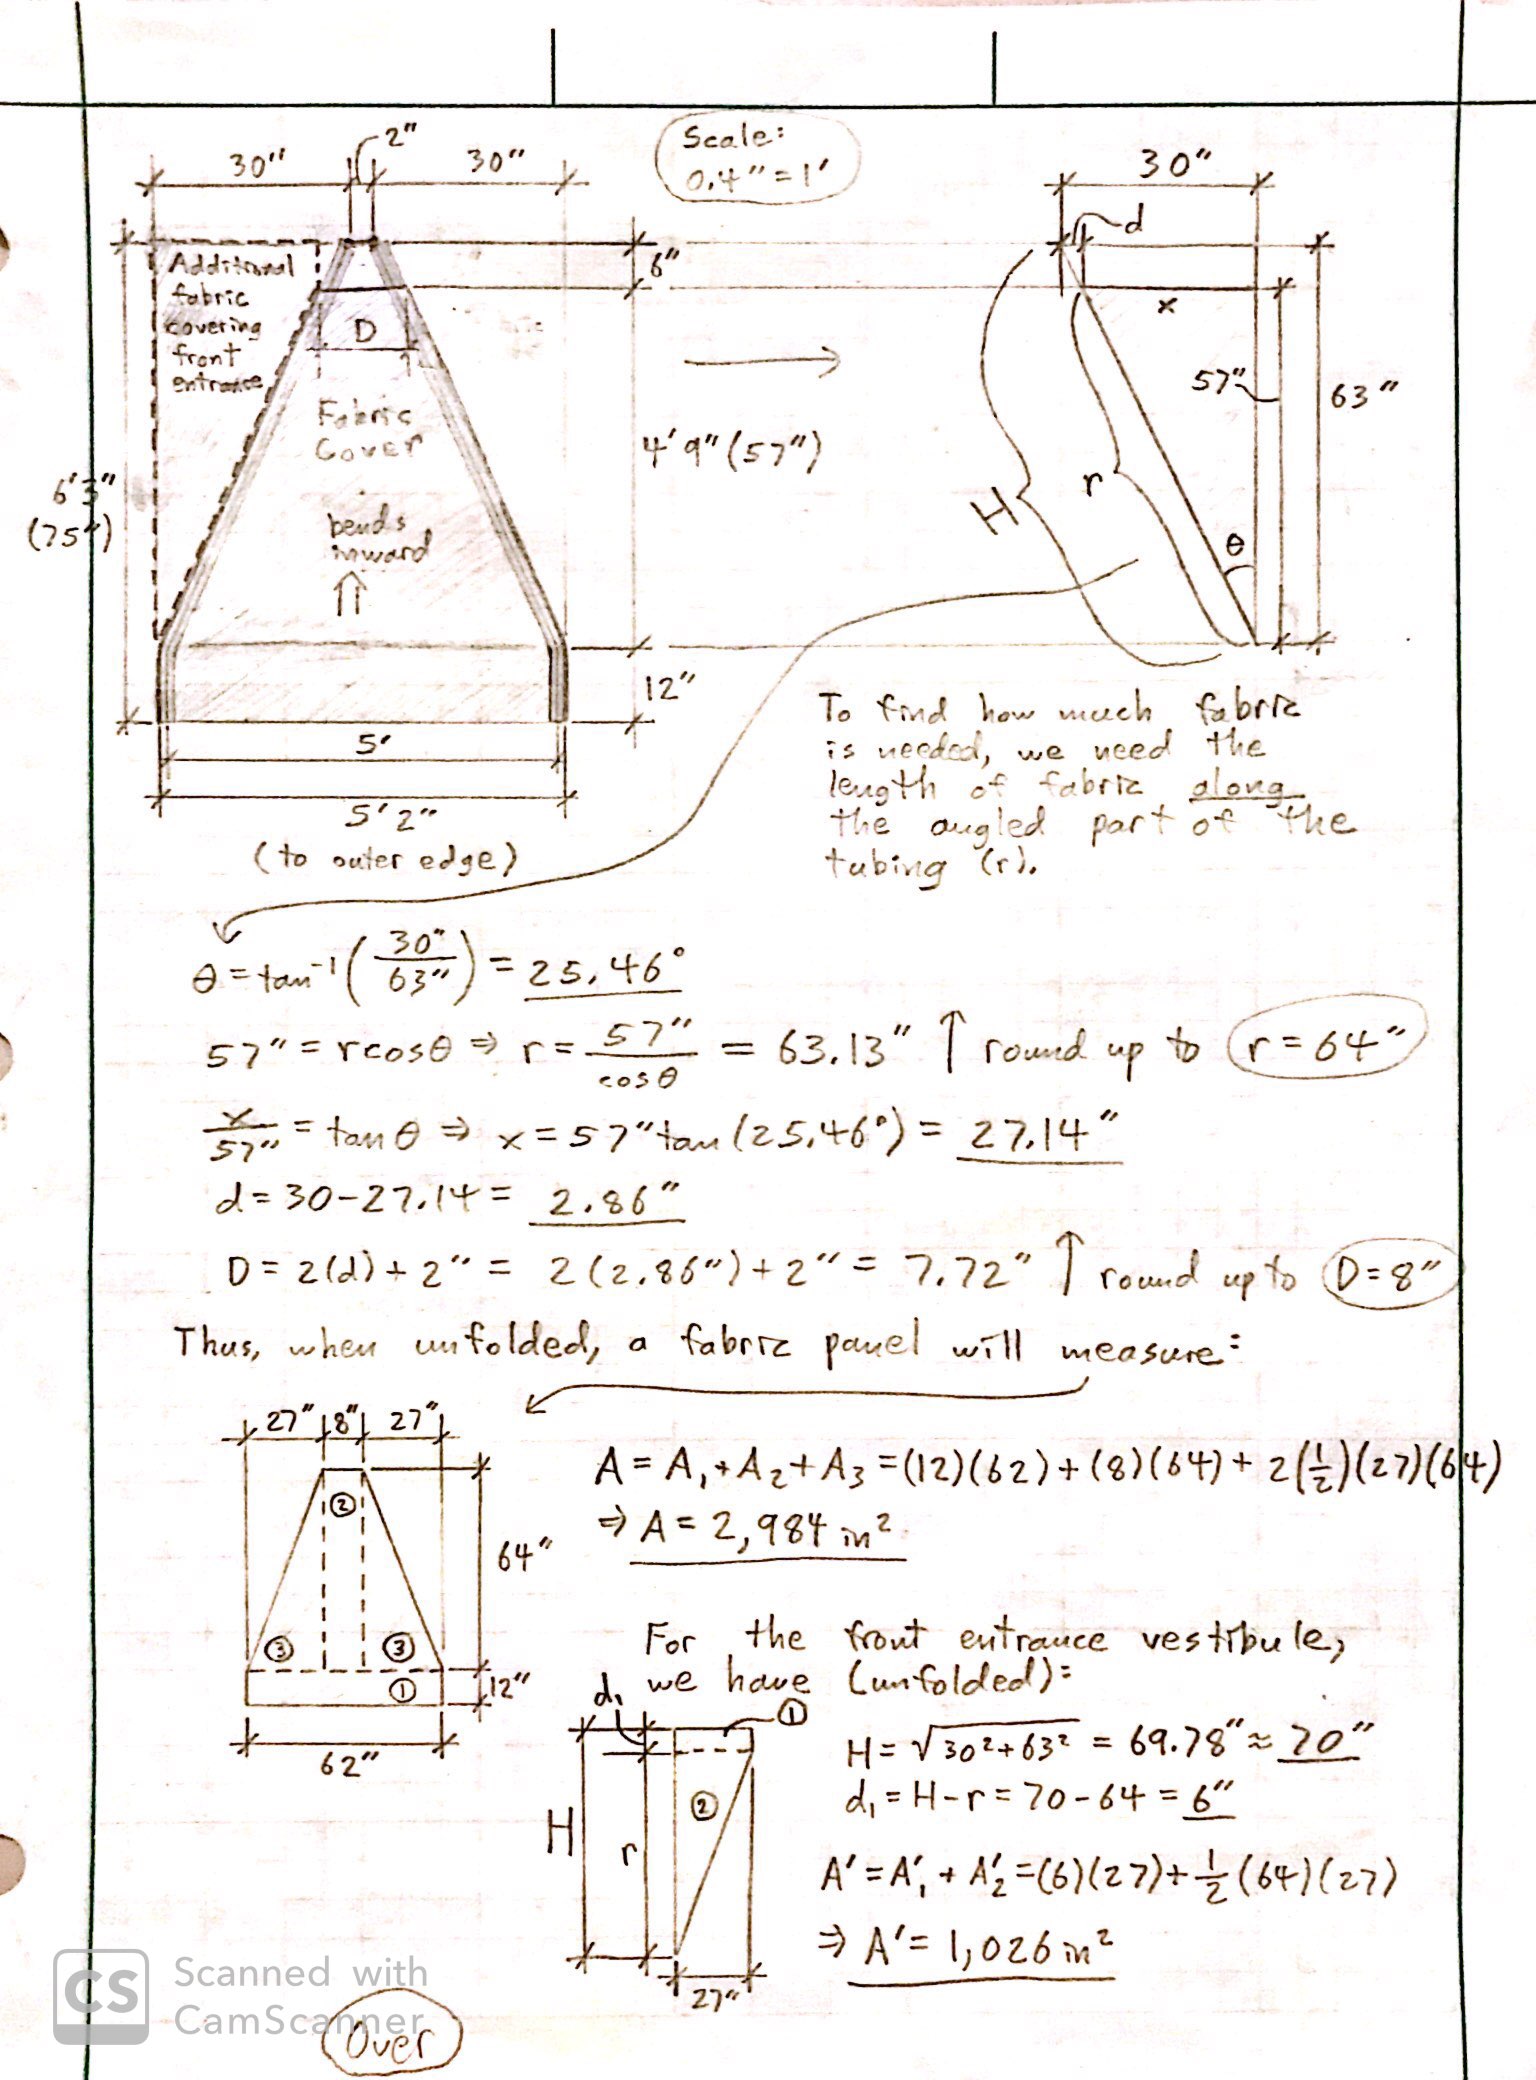 2"
30"
30"
Scale:
0.4" = 1'
30"
d
6"
Additional
fabric
covering
front
entrance
D
x
57"
63"
Fabric
Cover
4'9" (57")
6'3"
(75")
H
r
θ
bends
inward
12"
5'
5'2"
(to outer edge)
To find how much fabric
is needed, we need the
length of fabric along
the angled part of the
tubing (r).
θ = tan⁻¹(30"/63") = 25.46°
57" = r cos θ ⇒ r = 57"/cos θ = 63.13" ↑ round up to r = 64"
x/57" = tan θ ⇒ x = 57" tan(25.46°) = 27.14"
d = 30 - 27.14 = 2.86"
D = 2(d) + 2" = 2(2.86") + 2" = 7.72" ↑ round up to D = 8"
Thus, when unfolded, a fabric panel will measure:
27" 8" 27"
A = A₁ + A₂ + A₃ = (12)(62) + (8)(64) + 2(1/2)(27)(64)
⇒ A = 2,984 in²
②
64"
③ ③
①
12"
62"
For the front entrance vestibule,
we have (unfolded):
d₁
①
②
H
r
27"
H = √30² + 63² = 69.78" ≈ 70"
d₁ = H - r = 70 - 64 = 6"
A' = A'₁ + A'₂ = (6)(27) + 1/2 (64)(27)
⇒ A' = 1,026 in²
CS
Scanned with
CamScanner
Over